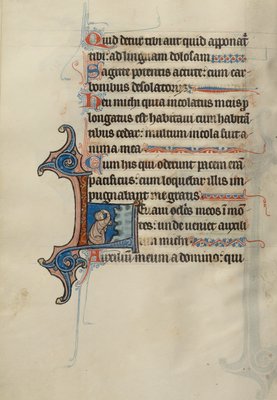 Quid detur tibi aut quid apponat᷑
tibi: ad linguam dolosam.
Sagitte potentis acute: cum car
bonibus desolatoriis.
Heu michi quia incolatus meus p̱
longatus est habitaui cum habitā
tibus cedar: multum incola fuit a
nima mea.
Cum hiis qui oderunt pacem erā
pacificus: cum loquebar illis im
pugnabant me gratis.
Leuaui oc̄los meos ī mō
tes: unde ueniet auxili
um michi.
Auxiliū meum a domino: qui